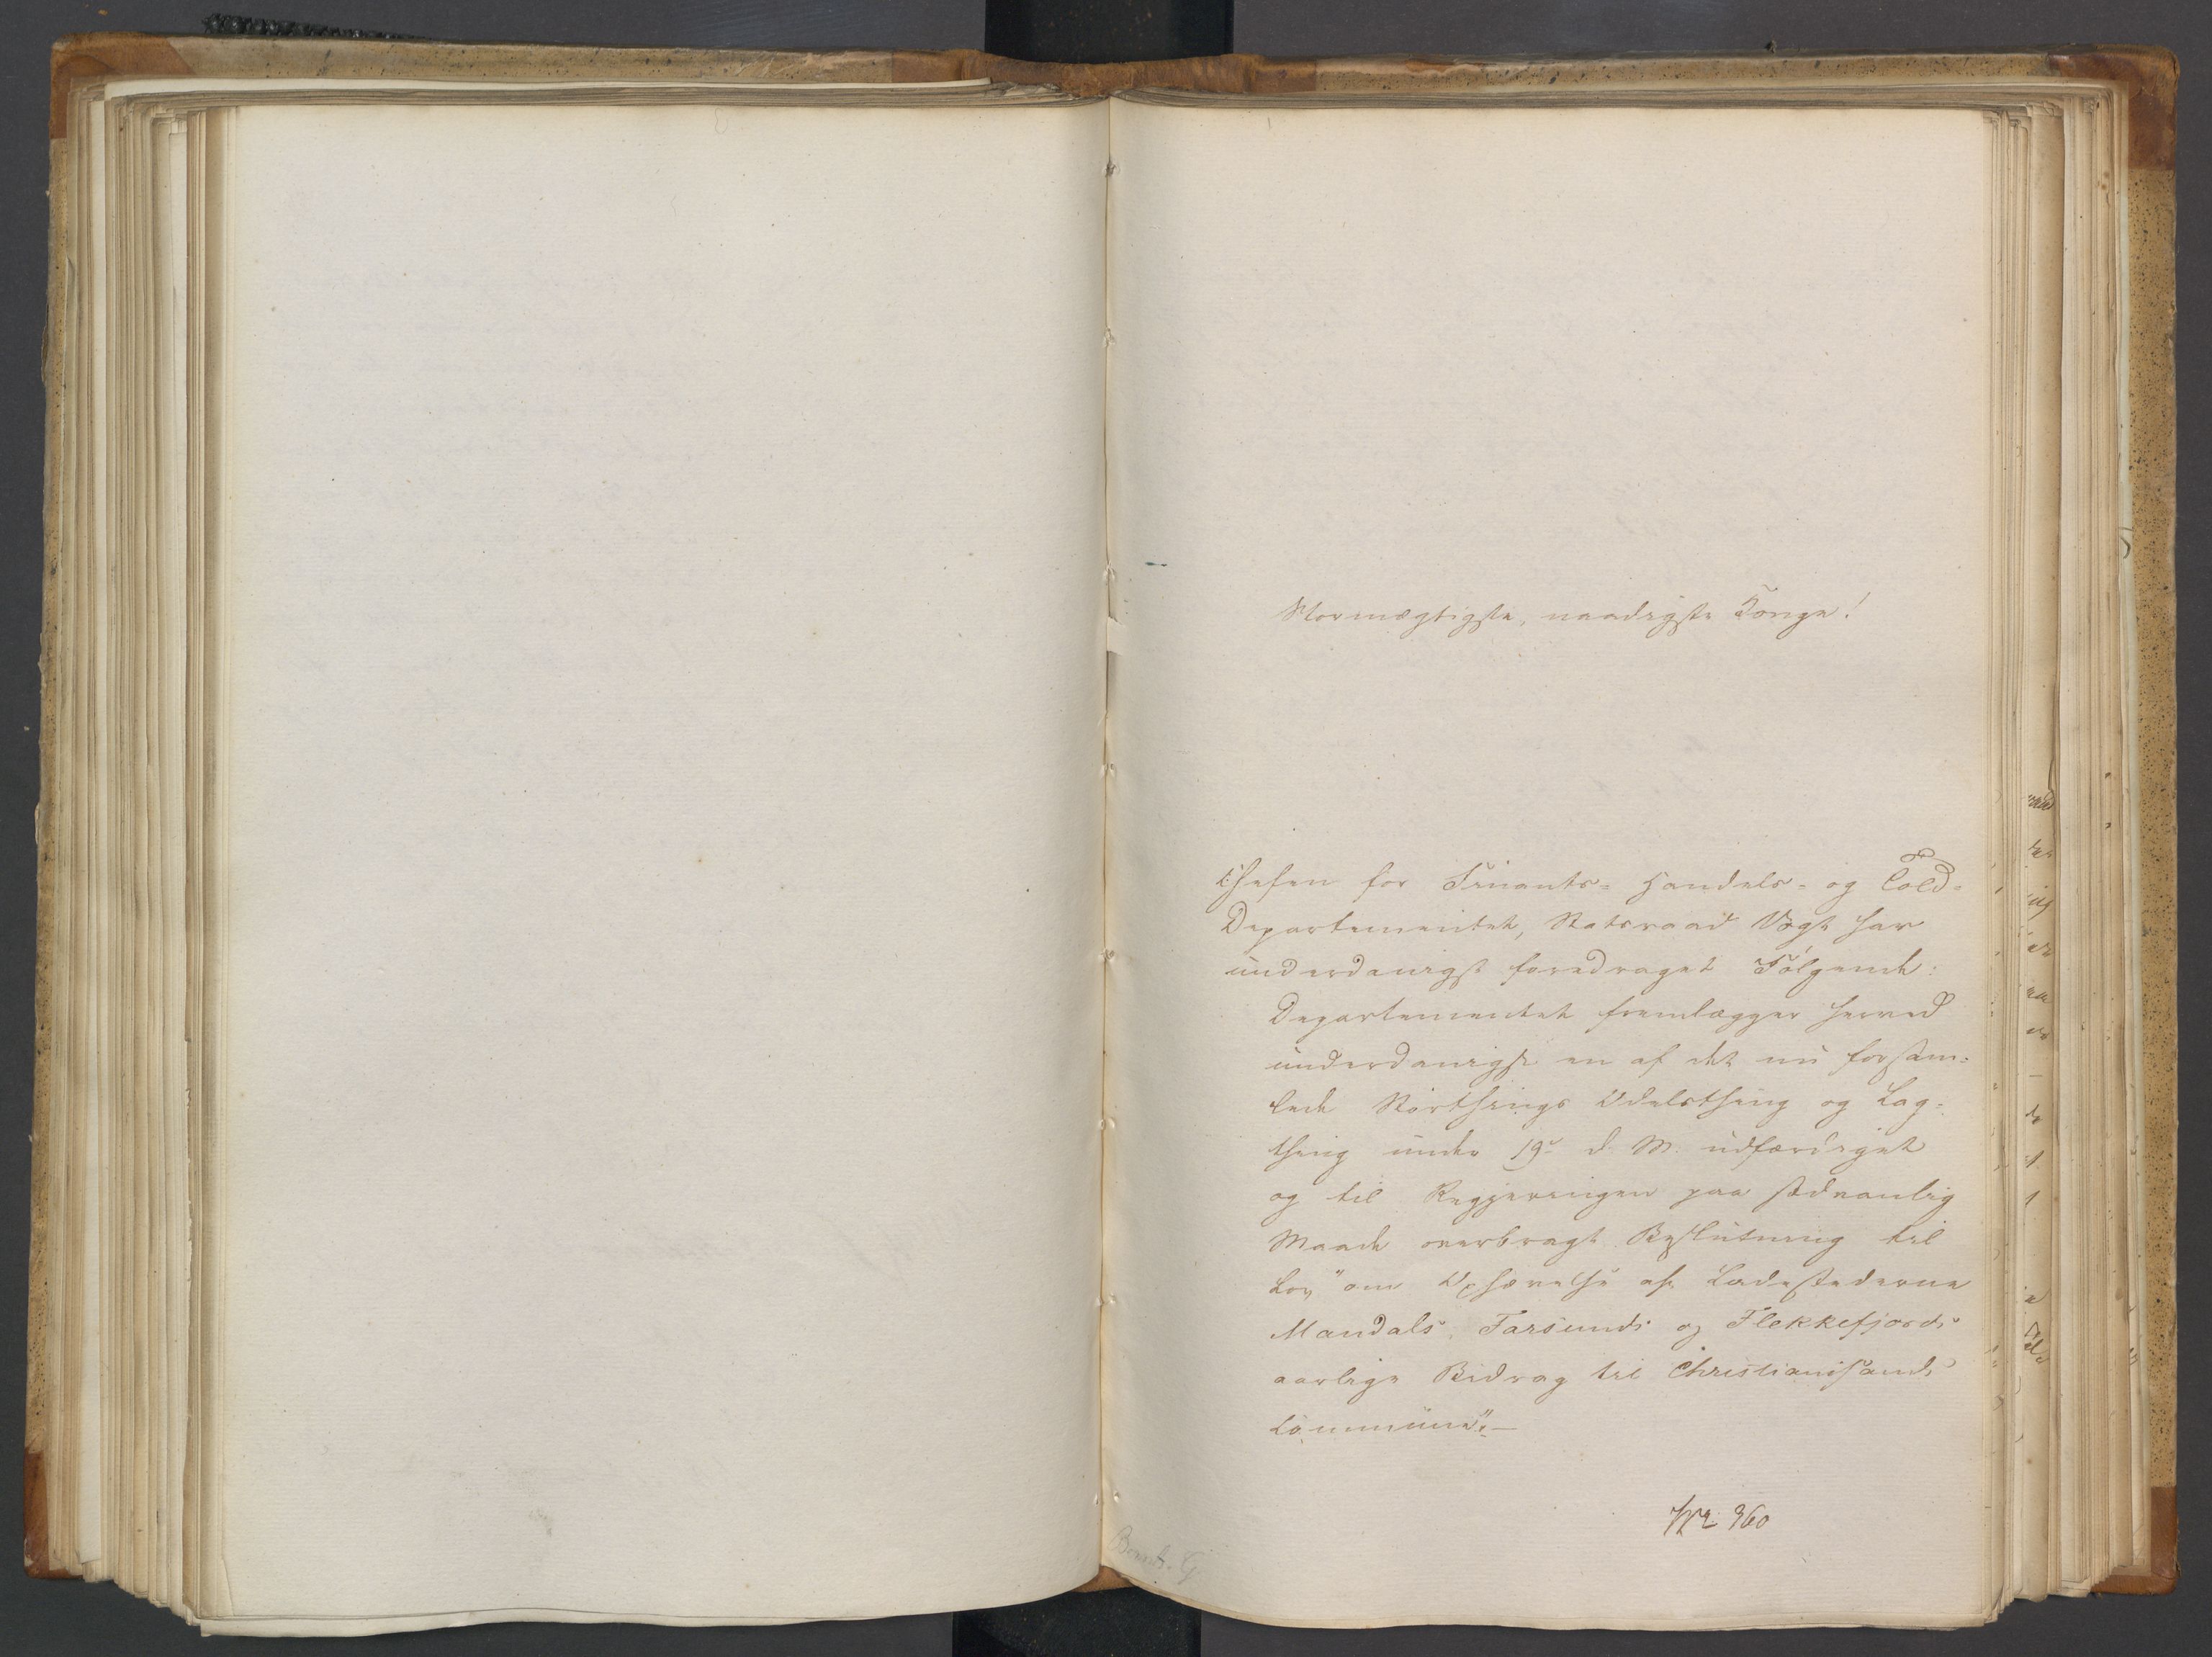 Stormægtigste, naadigste Konge!
Chefen for Finants- Handels- og Told-
Departementet, Statsraad Vogt har
underdanigst foredraget Følgende:
Departementet fremlægger herved
underdanigst en af det nu forsam-
lede Storthings Odelsthing og Lag-
thing under 19de d. M. udfærdiget
og til Regjeringen paa sædvanlig
Maade overbragt Beslutning til
Lov "om Ophævelse af Ladestederne
Mandals, Farsunds og Flekkefjords
aarlige Bidrag til Christianssands
Commune".—
No 360